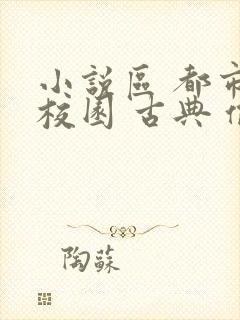 小說區 都市
校園 古典
陶蘇